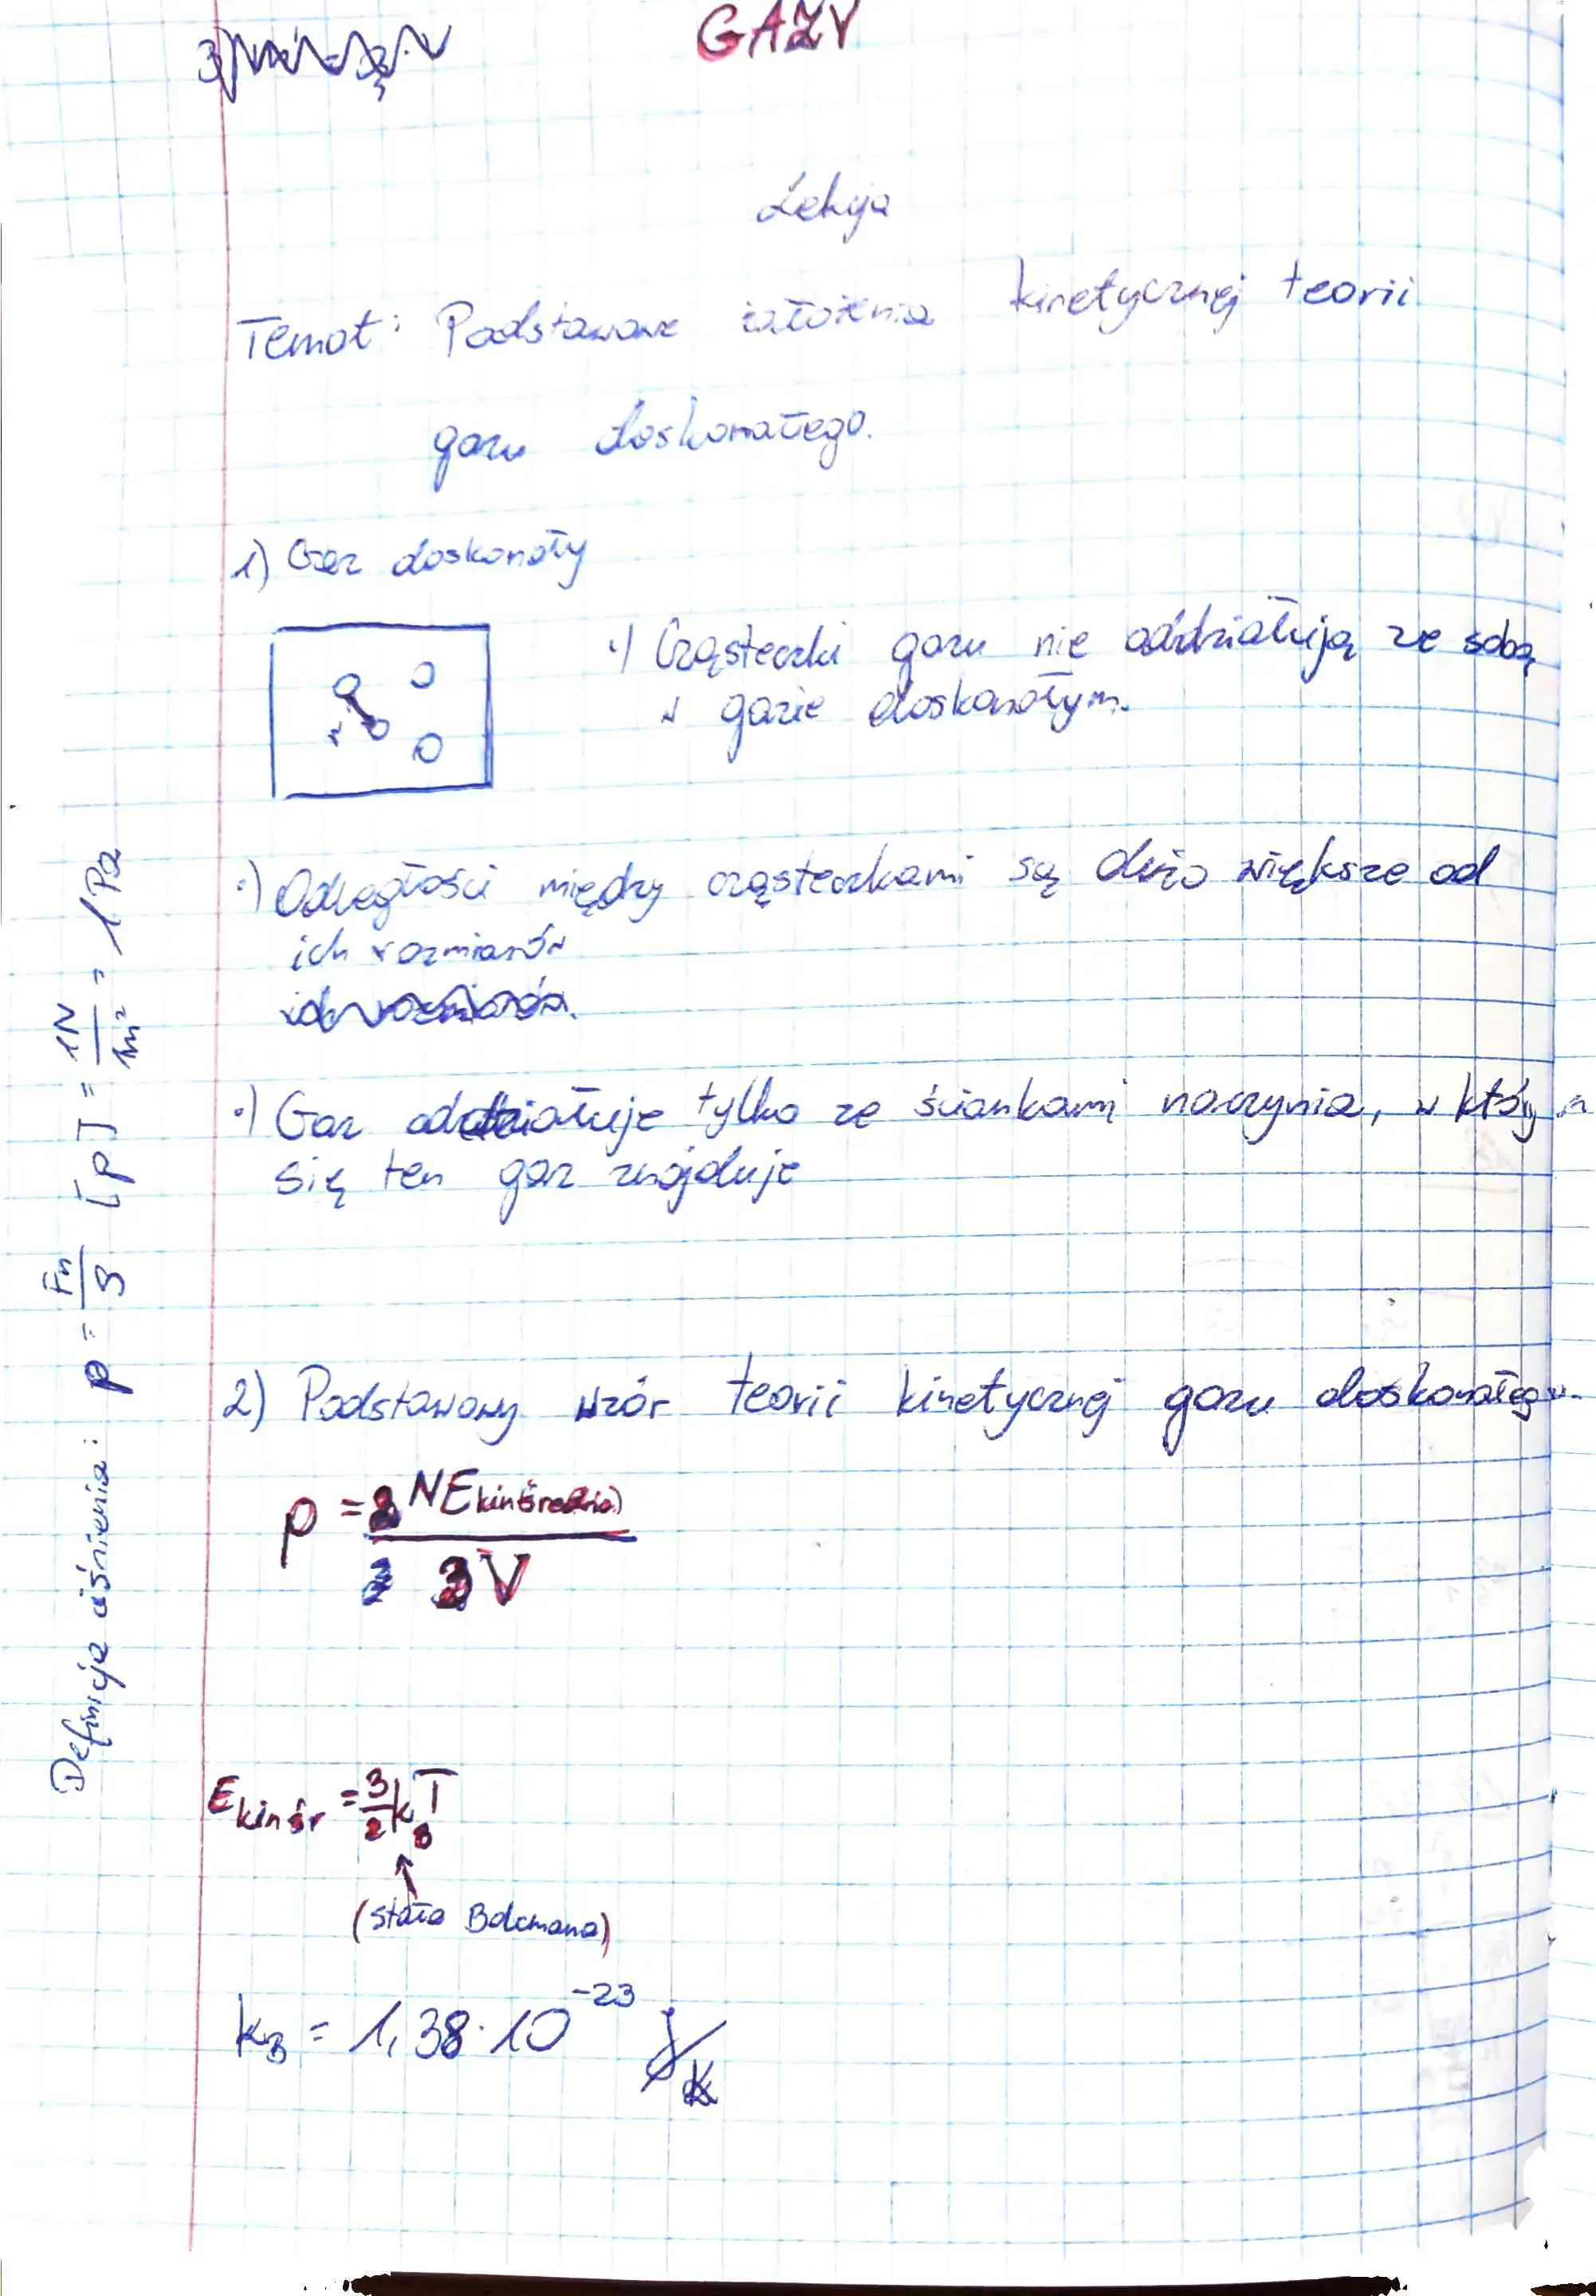 GAZY
Lekcja
Temat: Podstawowe założenia kinetycznej teorii
gazu doskonałego.
1) Gaz doskonały
r
•) Cząsteczki gazu nie oddziałują ze sobą
w gazie doskonałym.
•) Odległości między cząsteczkami są dużo większe od
ich rozmiarów
•) Gaz oddziałuje tylko ze ściankami naczynia, w którym
się ten gaz znajduje
2) Podstawowy wzór teorii kinetycznej gazu doskonałego
p = 2 N E kin(średnia)
3 V
E kin śr = 3/2 k_B T
(stała Bolcmana)
k_B = 1,38 · 10^-23 J/K
Definicja ciśnienia: p = Fn/S [p] = 1N/1m² = 1 Pa